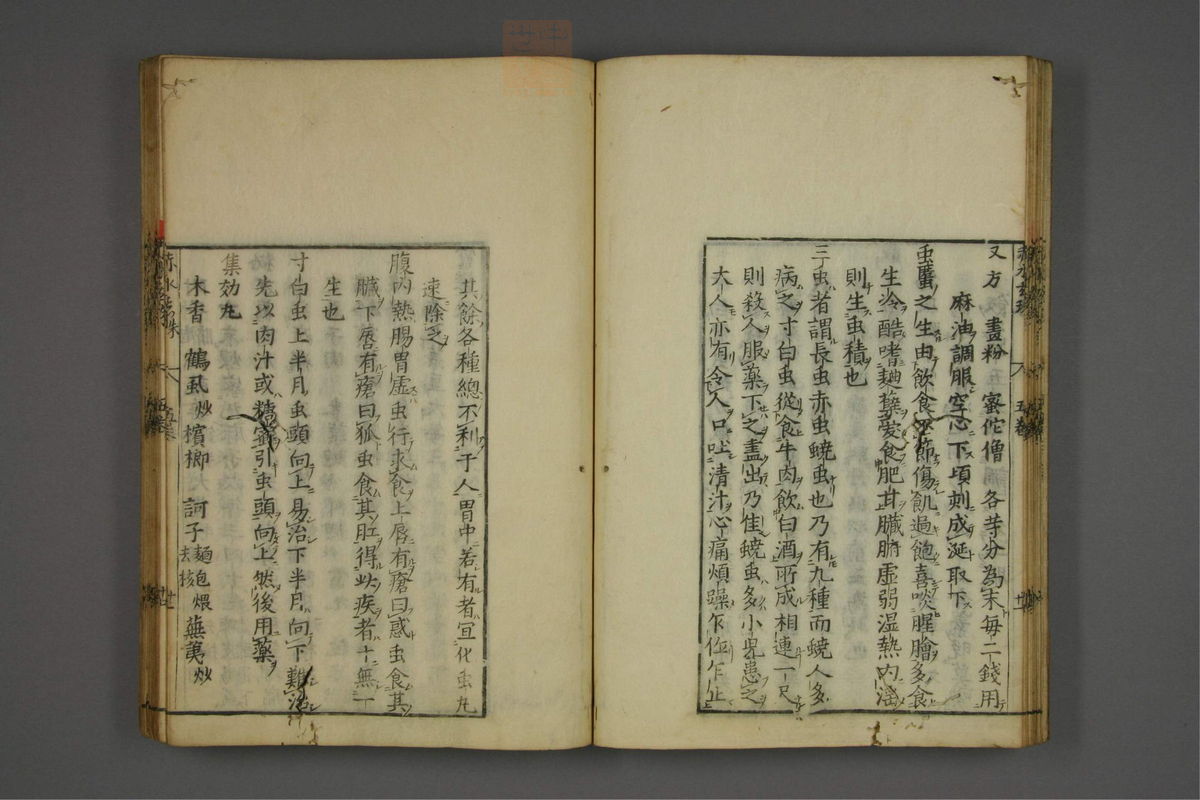 又方 畫粉 蜜佗僧各等分為末每二錢用
麻油調服空心下頃刻成涎取下
虫䘌之生由飲食不節傷飢過飽喜啖腥膾多食
生冷酷嗜麹蘖愛食肥甘臟腑虛弱湿熱内
則生虫積也
三虫者謂長虫赤虫蟯虫也乃有九種而蟯人多
病之寸白虫從食牛肉飲白酒所成相連一尺
則殺人服藥下之盡出乃佳蟯虫多小児患之
大人亦有令人口吐清汁心痛煩躁乍作乍止
其餘各種總不利于人胃中若有者宣化虫丸
速除之
腹内熱腸胃虛虫行求食上唇有瘡曰惑虫食其
臟下唇有瘡曰狐虫食其肛得此疾者十無一
生也
寸白虫上半月虫頭向上易治下半月向下難治
先以肉汁或糖蜜引虫頭向上然後用藥
集効丸
木香 鶴虱炒 檳榔 訶子麵包煨去核 蕪荑炒